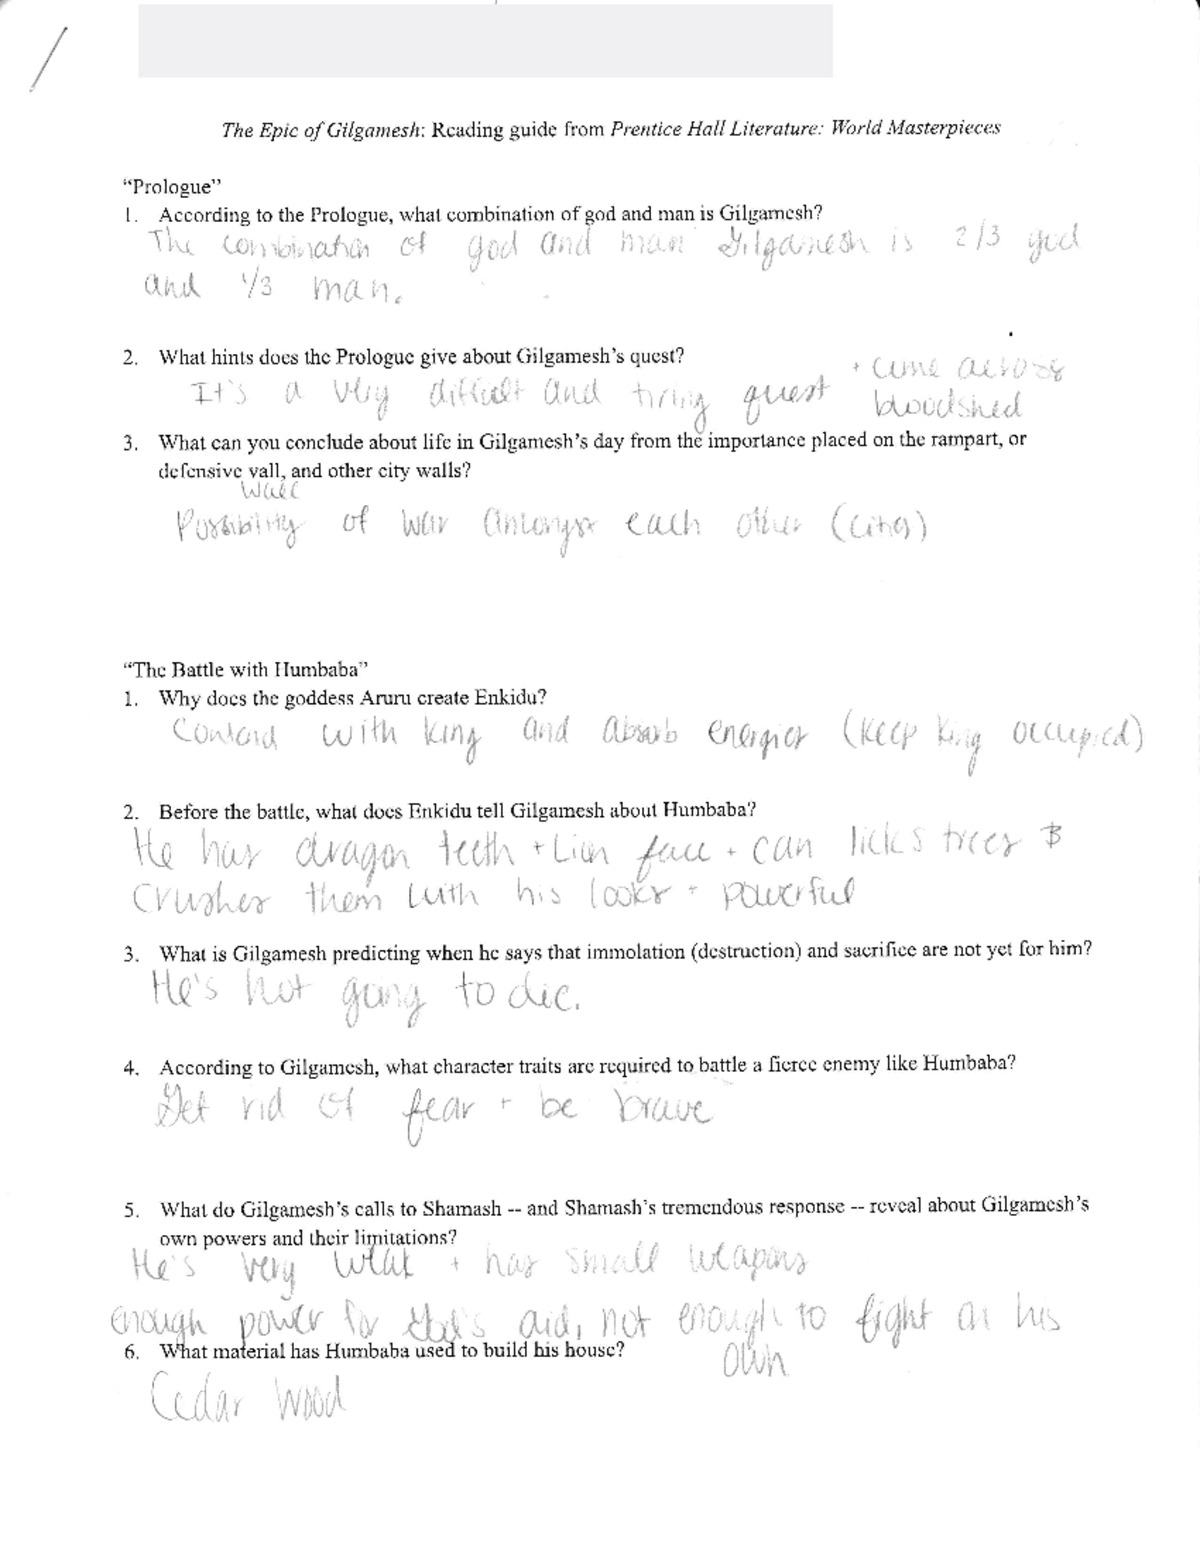 The Epic of Gilgamesh: Reading guide from Prentice Hall Literature: World Masterpieces
“Prologue”
1. According to the Prologue, what combination of god and man is Gilgamesh?
The combination of god and man Gilgamesh is 2/3 god
and 1/3 man.
2. What hints does the Prologue give about Gilgamesh’s quest?
It's a very difficult and tiring quest
+ came across
bloodshed
3. What can you conclude about life in Gilgamesh’s day from the importance placed on the rampart, or
defensive vall, and other city walls?
wall
Possibility of war amongst each other (cities)
“The Battle with Humbaba”
1. Why does the goddess Aruru create Enkidu?
Contend with king and absorb energies (keep king occupied)
2. Before the battle, what does Enkidu tell Gilgamesh about Humbaba?
He has dragon teeth + Lion face + can licks trees &
crushes them with his looks + powerful
3. What is Gilgamesh predicting when he says that immolation (destruction) and sacrifice are not yet for him?
He's not going to die.
4. According to Gilgamesh, what character traits are required to battle a fierce enemy like Humbaba?
Get rid of fear + be brave
5. What do Gilgamesh’s calls to Shamash -- and Shamash’s tremendous response -- reveal about Gilgamesh’s
own powers and their limitations?
He's very weak + has small weapons
enough power for aid, not enough to fight on his
own
6. What material has Humbaba used to build his house?
Cedar Wood